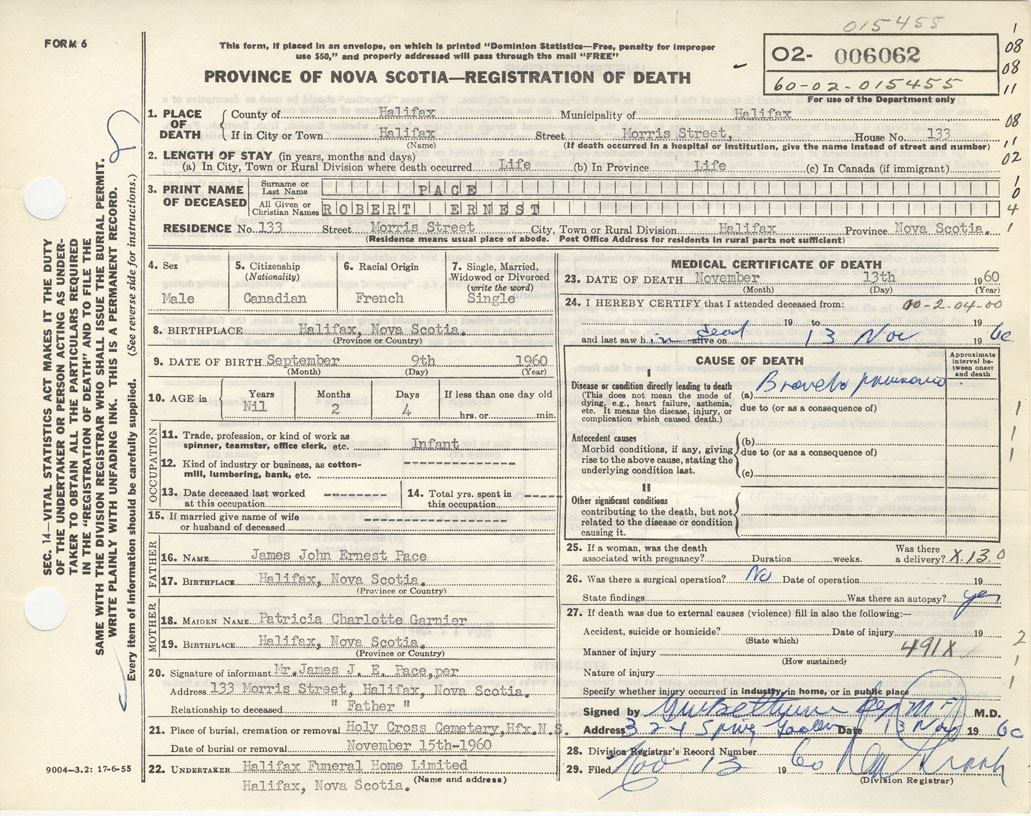 015455
FORM 6
This form, if placed in an envelope, on which is printed "Dominion Statistics—Free, penalty for improper
use $50," and properly addressed will pass through the mail "FREE"
PROVINCE OF NOVA SCOTIA—REGISTRATION OF DEATH
O2- 006062
60-02-015455
For use of the Department only
1. PLACE OF DEATH
County of Halifax Municipality of Halifax
If in City or Town Halifax Street Morris Street, House No. 133
(Name) (If death occurred in a hospital or institution, give the name instead of street and number)
2. LENGTH OF STAY (in years, months and days)
(a) In City, Town or Rural Division where death occurred Life (b) In Province Life (c) In Canada (if immigrant)
3. PRINT NAME OF DECEASED
Surname or Last Name PACE
All Given or Christian Names ROBERT ERNEST
RESIDENCE No. 133 Street Morris Street City, Town or Rural Division Halifax Province Nova Scotia.
(Residence means usual place of abode. Post Office Address for residents in rural parts not sufficient)
4. Sex
Male
5. Citizenship
(Nationality)
Canadian
6. Racial Origin
French
7. Single, Married, Widowed or Divorced
(write the word)
Single
8. BIRTHPLACE Halifax, Nova Scotia.
(Province or Country)
9. DATE OF BIRTH September 9th 1960
(Month) (Day) (Year)
10. AGE in Years Months Days If less than one day old
Nil 2 4 hrs. or min.
OCCUPATION
11. Trade, profession, or kind of work as
spinner, teamster, office clerk, etc. Infant
12. Kind of industry or business, as cotton-
mill, lumbering, bank, etc. --------------
13. Date deceased last worked
at this occupation --------
14. Total yrs. spent in
this occupation --------
15. If married give name of wife
or husband of deceased ------------------
FATHER
16. NAME James John Ernest Pace
17. BIRTHPLACE Halifax, Nova Scotia.
(Province or Country)
MOTHER
18. MAIDEN NAME Patricia Charlotte Garnier
19. BIRTHPLACE Halifax, Nova Scotia.
(Province or Country)
20. Signature of informant Mr. James J. E. Pace, per
Address 133 Morris Street, Halifax, Nova Scotia.
Relationship to deceased " Father "
21. Place of burial, cremation or removal Holy Cross Cemetery, Hfx, N.S.
Date of burial or removal November 15th-1960
22. UNDERTAKER Halifax Funeral Home Limited
(Name and address)
Halifax, Nova Scotia.
MEDICAL CERTIFICATE OF DEATH
23. DATE OF DEATH November 13th 1960
(Month) (Day) (Year)
24. I HEREBY CERTIFY that I attended deceased from: 00-2-04-00
19 to 19
and last saw h im dead alive on 13 Nov 1960
CAUSE OF DEATH
Approximate interval between onset and death
I
Disease or condition directly leading to death
(This does not mean the mode of
dying, e.g., heart failure, asthenia,
etc. It means the disease, injury, or
complication which caused death.)
(a) Broncho pneumonia
due to (or as a consequence of)
Antecedent causes
Morbid conditions, if any, giving
rise to the above cause, stating the
underlying condition last.
(b)
due to (or as a consequence of)
(c)
II
Other significant conditions
contributing to the death, but not
related to the disease or condition
causing it.
25. If a woman, was the death
associated with pregnancy? Duration weeks. Was there a delivery? X.130
26. Was there a surgical operation? No Date of operation 19
State findings Was there an autopsy? yes
27. If death was due to external causes (violence) fill in also the following:—
Accident, suicide or homicide? Date of injury 19
(State which)
Manner of injury 491X
(How sustained)
Nature of injury
Specify whether injury occurred in industry, in home, or in public place
Signed by M.D.
Address 324 Spring Garden Date 13 Nov 1960
28. Division Registrar's Record Number
29. Filed Nov 13 1960
(Division Registrar)
SEC. 14—VITAL STATISTICS ACT MAKES IT THE DUTY
OF THE UNDERTAKER OR PERSON ACTING AS UNDER-
TAKER TO OBTAIN ALL THE PARTICULARS REQUIRED
IN THE "REGISTRATION OF DEATH" AND TO FILE THE
SAME WITH THE DIVISION REGISTRAR WHO SHALL ISSUE THE BURIAL PERMIT.
WRITE PLAINLY WITH UNFADING INK. THIS IS A PERMANENT RECORD.
Every item of information should be carefully supplied. (See reverse side for instructions.)
9004—3.2: 17-6-55
1
08
08
11
08
11
02
1
0
4
1
1
1
1
2
1
1